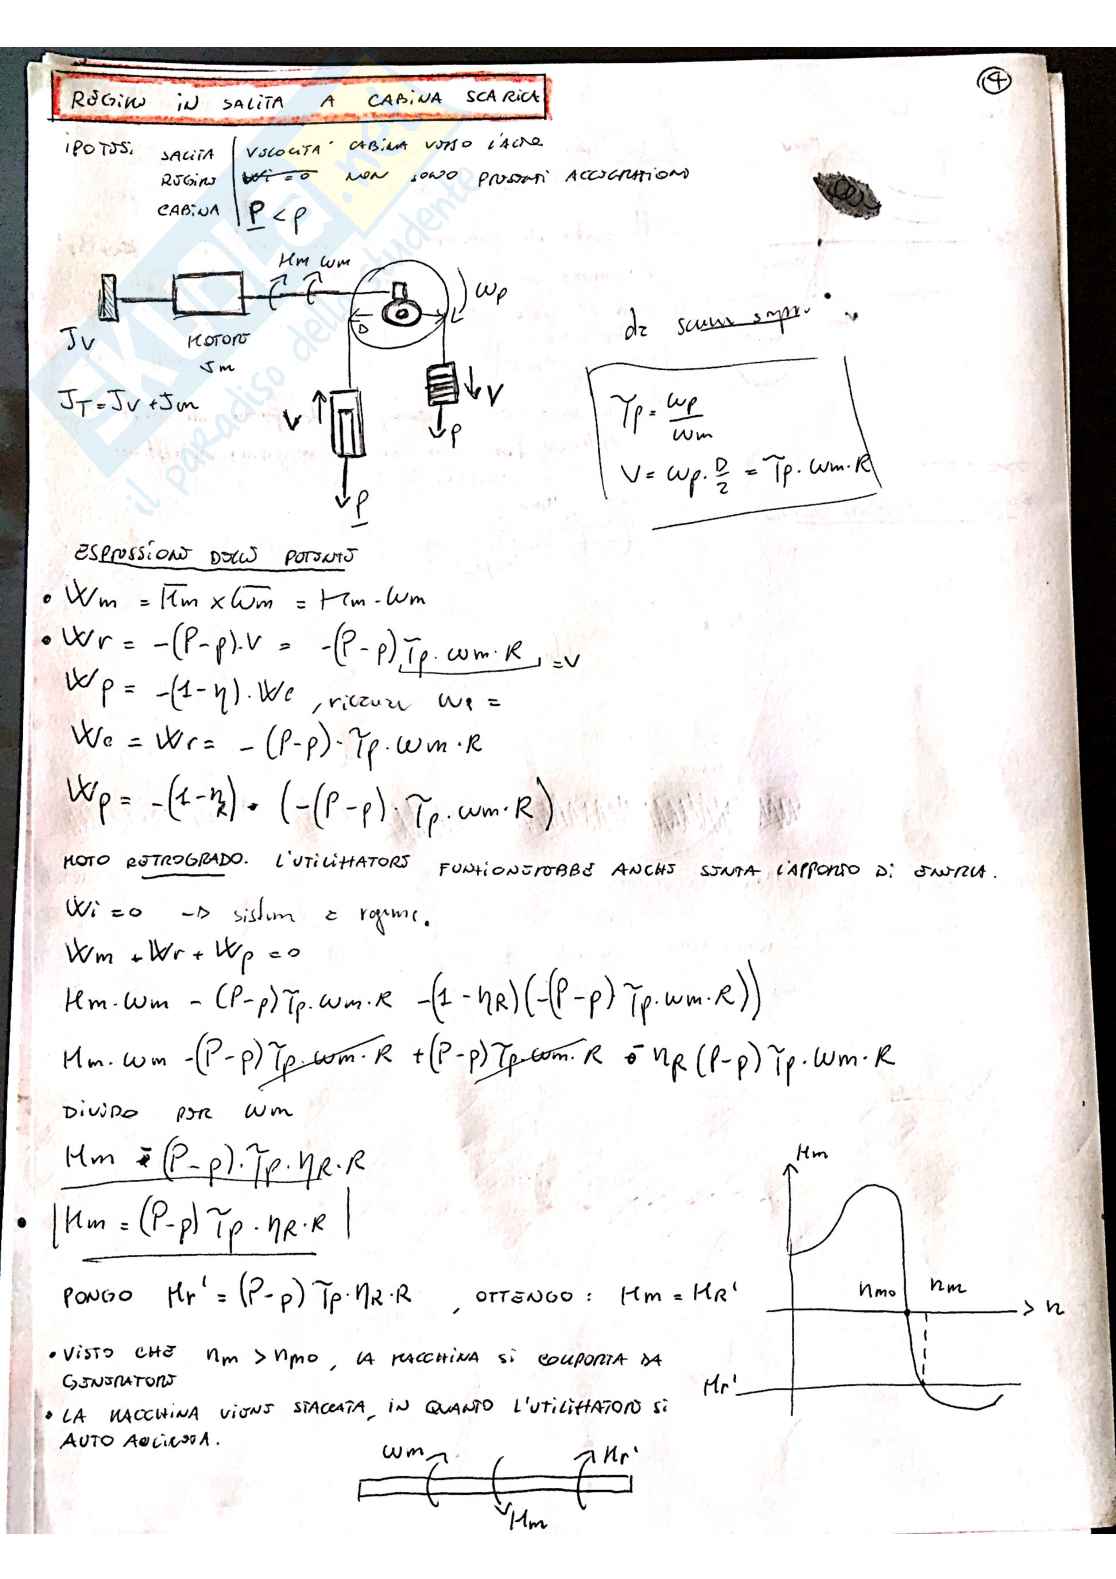 14
REGIME IN SALITA A CABINA SCARICA
IPOTESI SALITA | VELOCITA' CABINA VERSO L'ALTO
REGIME | Wi=0 NON SONO PRESENTI ACCELERAZIONI
CABINA | P < p
Mm ωm
ωp
D
Jv
MOTORE
Jm
JT = Jv + Jm
V
V
p
P
da
τp = ωp/ωm
V = ωp · D/2 = τp · ωm · R
ESPRESSIONE DELLE POTENZE
• Wm = Mm x ωm = Mm · ωm
• Wr = -(P-p)·V = -(P-p) τp · ωm · R = V
Wp = -(1-η) · We , ricavare We =
We = Wr = -(P-p) · τp · ωm · R
Wp = -(1-ηR) · (-(P-p) · τp · ωm · R)
MOTO RETROGRADO. L'UTILIZZATORE FUNZIONEREBBE ANCHE SENZA L'APPORTO DI ENERGIA.
Wi = 0 -> sistema a regime.
Wm + Wr + Wp = 0
Mm · ωm - (P-p) τp · ωm · R -(1-ηR)(-(P-p) τp · ωm · R))
Mm · ωm -(P-p) τp · ωm · R +(P-p) τp · ωm · R - ηR (P-p) τp · ωm · R
DIVIDO PER ωm
Mm = (P-p) · τp · ηR · R
• | Mm = (P-p) τp · ηR · R |
PONGO Mr' = (P-p) τp · ηR · R , OTTENGO : Mm = MR'
• VISTO CHE nm > nmo , LA MACCHINA SI COMPORTA DA
GENERATORE
• LA MACCHINA VIENE STACCATA, IN QUANTO L'UTILIZZATORE SI
AUTO
Mm
nmo
nm
n
Mr'
ωm
Mr'
Mm
EKUDE.net
il paradiso dello studente